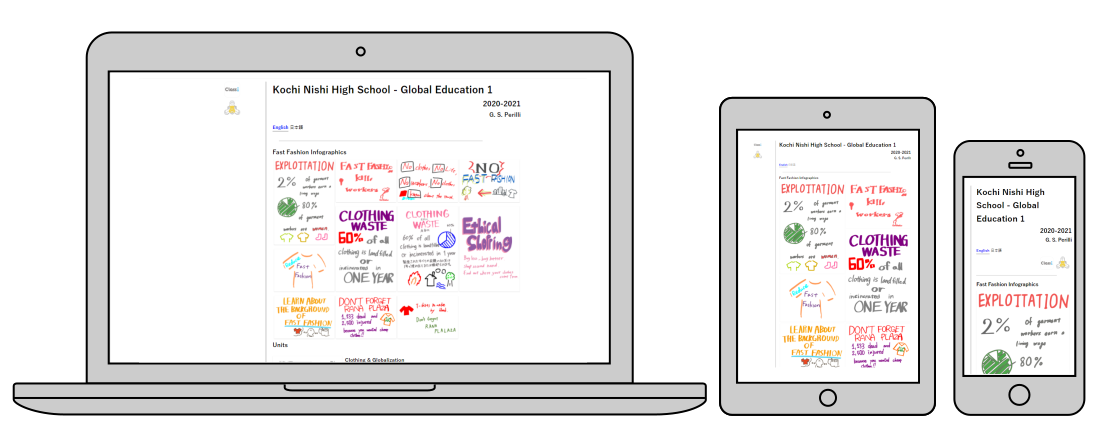 Classi
Kochi Nishi High School - Global Education 1
2020-2021
G. S. Perilli
English 日本語
Fast Fashion Infographics
EXPLOTTATION
2% of garment
workers earn a
living wage
80%
of garment
workers are women
FAST FASHION
kills
workers
No clothes No life
No workers No clothes
NO
FAST FASHION
CLOTHING
WASTE
60% of all
clothing is landfilled
or
incinerated in
ONE YEAR
CLOTHING
WASTE
60% of all
clothing is landfilled
or incinerated in 1 year
Ethical
Clothing
Fast
Fashion
LEARN ABOUT
THE BACKGROUND
OF
FAST FASHION
DON'T FORGET
RANA PLAZA
1,133 dead and
2,500 injured
because you wanted cheap
clothes!!
Don't forget
RANA
PLAZA
Units
Clothing & Globalization
Kochi Nishi High School - Global Education 1
2020-2021
G. S. Perilli
Fast Fashion Infographics
EXPLOTTATION
2% of garment
workers earn a
living wage
80%
of garment
workers are women
FAST FASHION
kills
workers
CLOTHING
WASTE
60% of all
clothing is landfilled
or
incinerated in
ONE YEAR
Fast
Fashion
LEARN ABOUT
THE BACKGROUND
OF
FAST FASHION
DON'T FORGET
RANA PLAZA
1,133 dead and
2,500 injured
because you wanted cheap
clothes!!
Kochi Nishi High
School - Global
Education 1
2020-2021
G. S. Perilli
English 日本語
Classi
Fast Fashion Infographics
EXPLOTTATION
2% of garment
workers earn a
living wage
80%